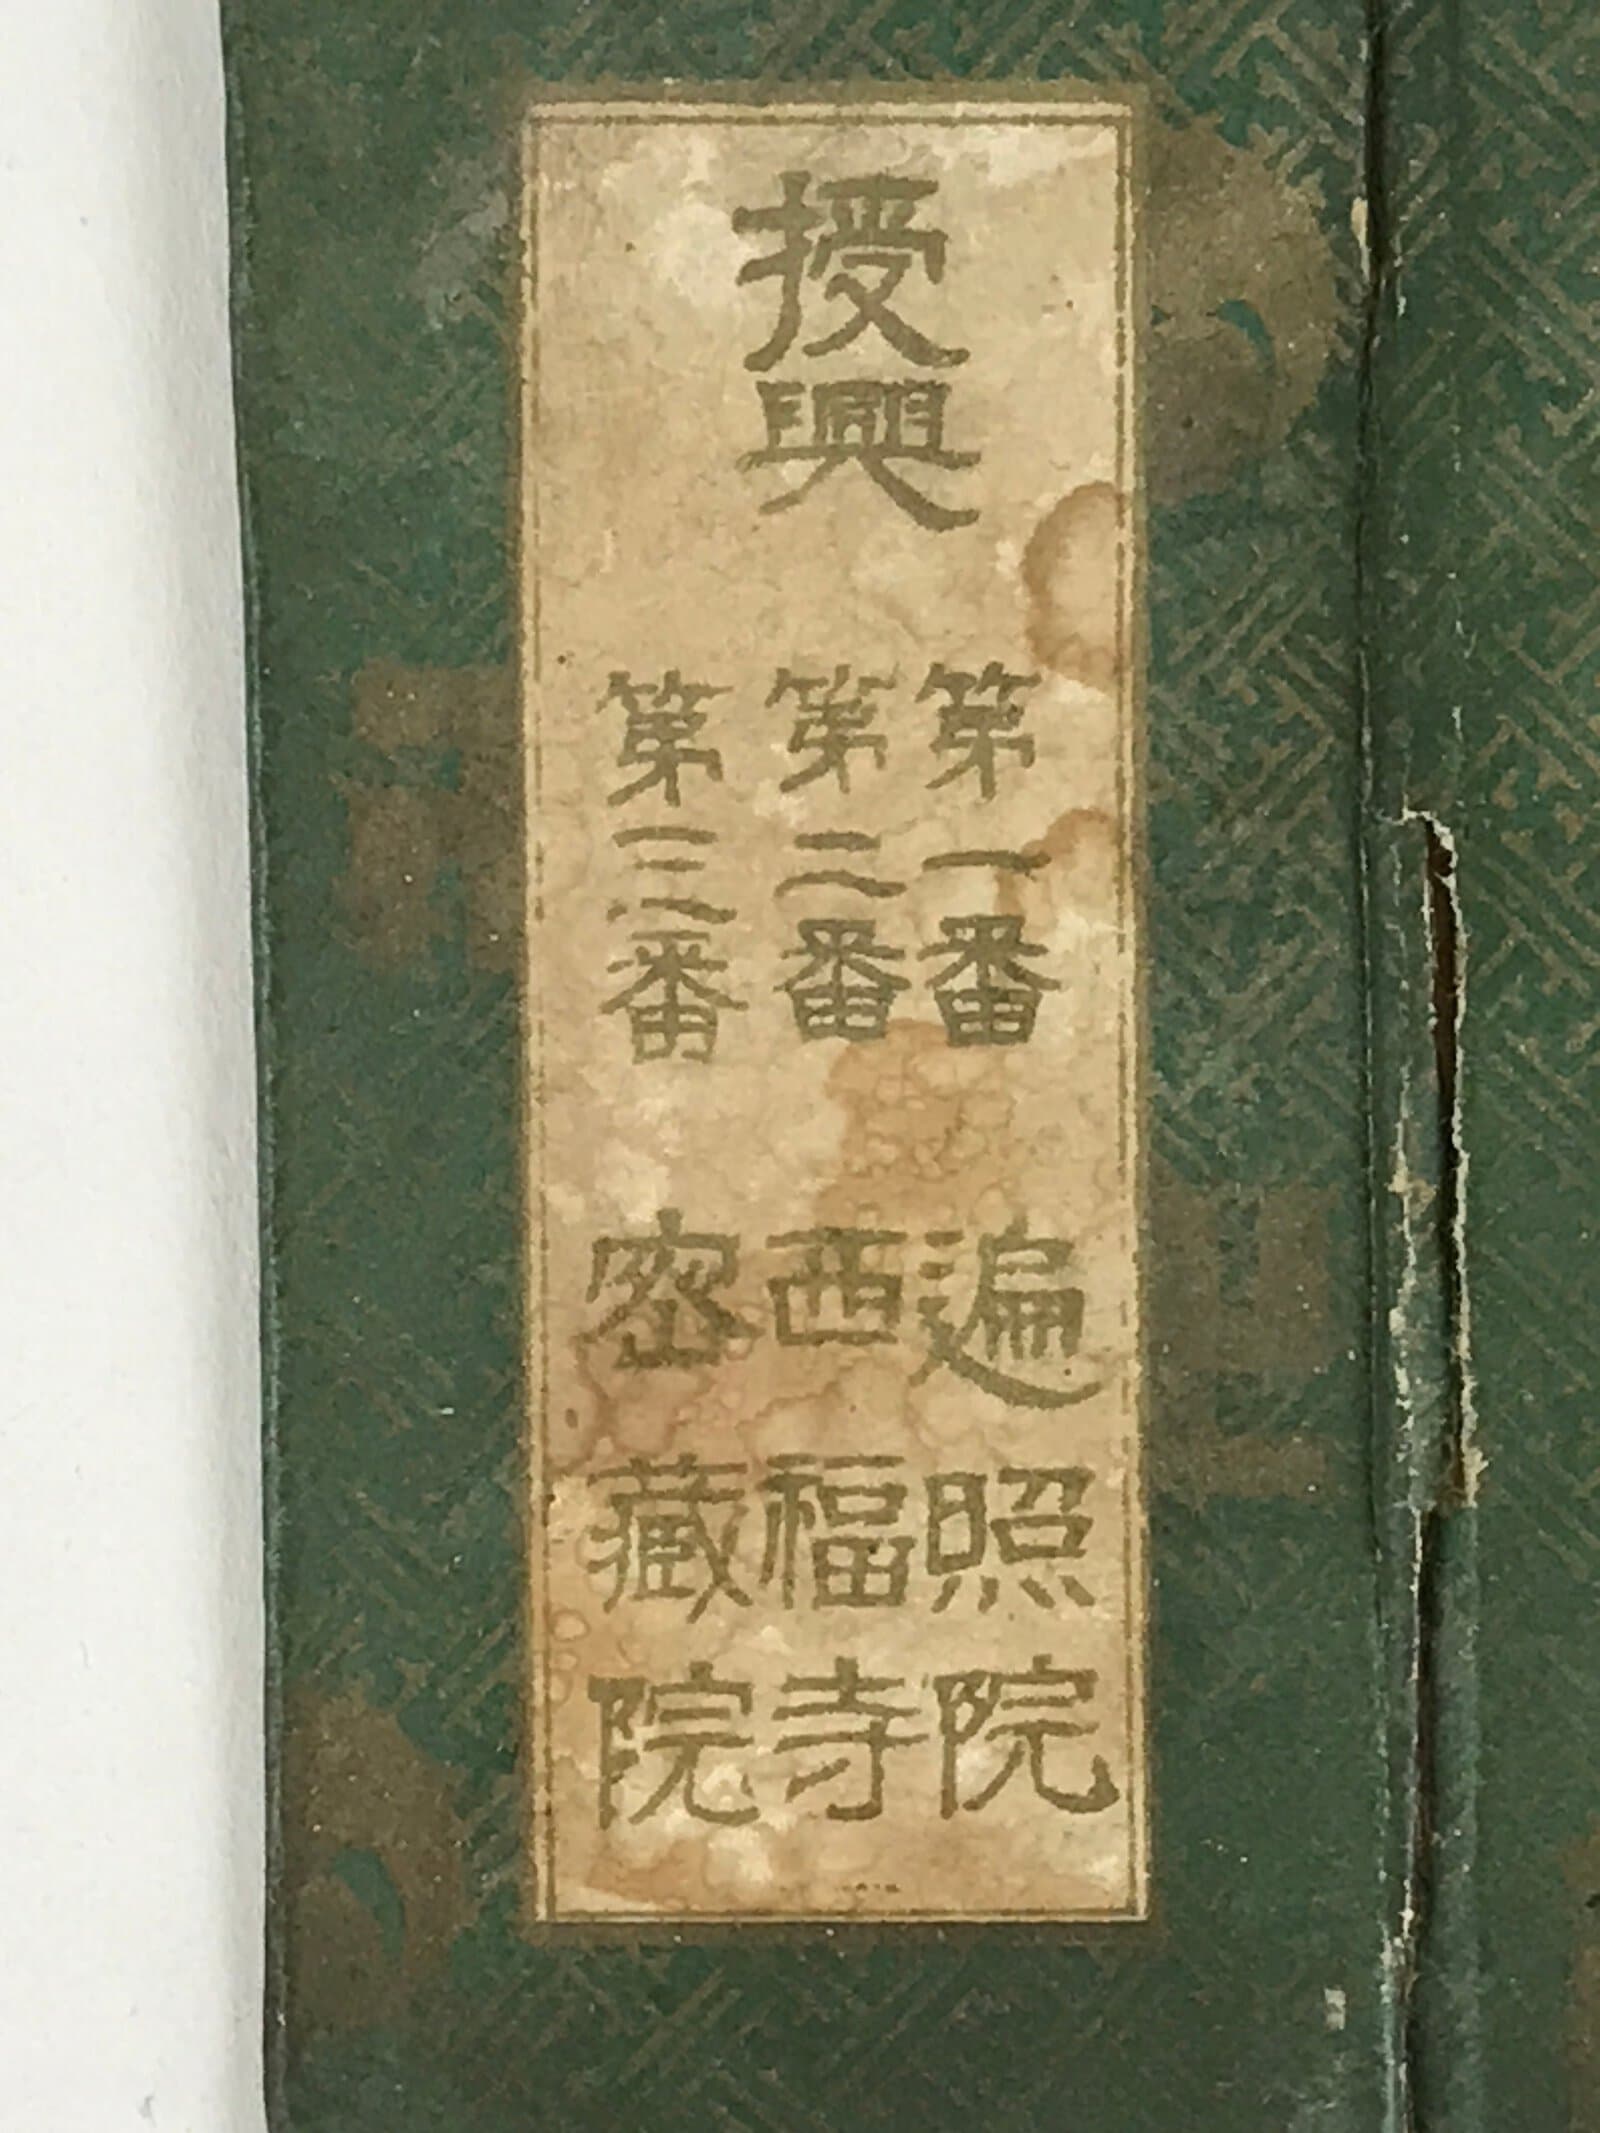 授興
第一番 遍照院
第二番 西福寺
第三番 密藏院